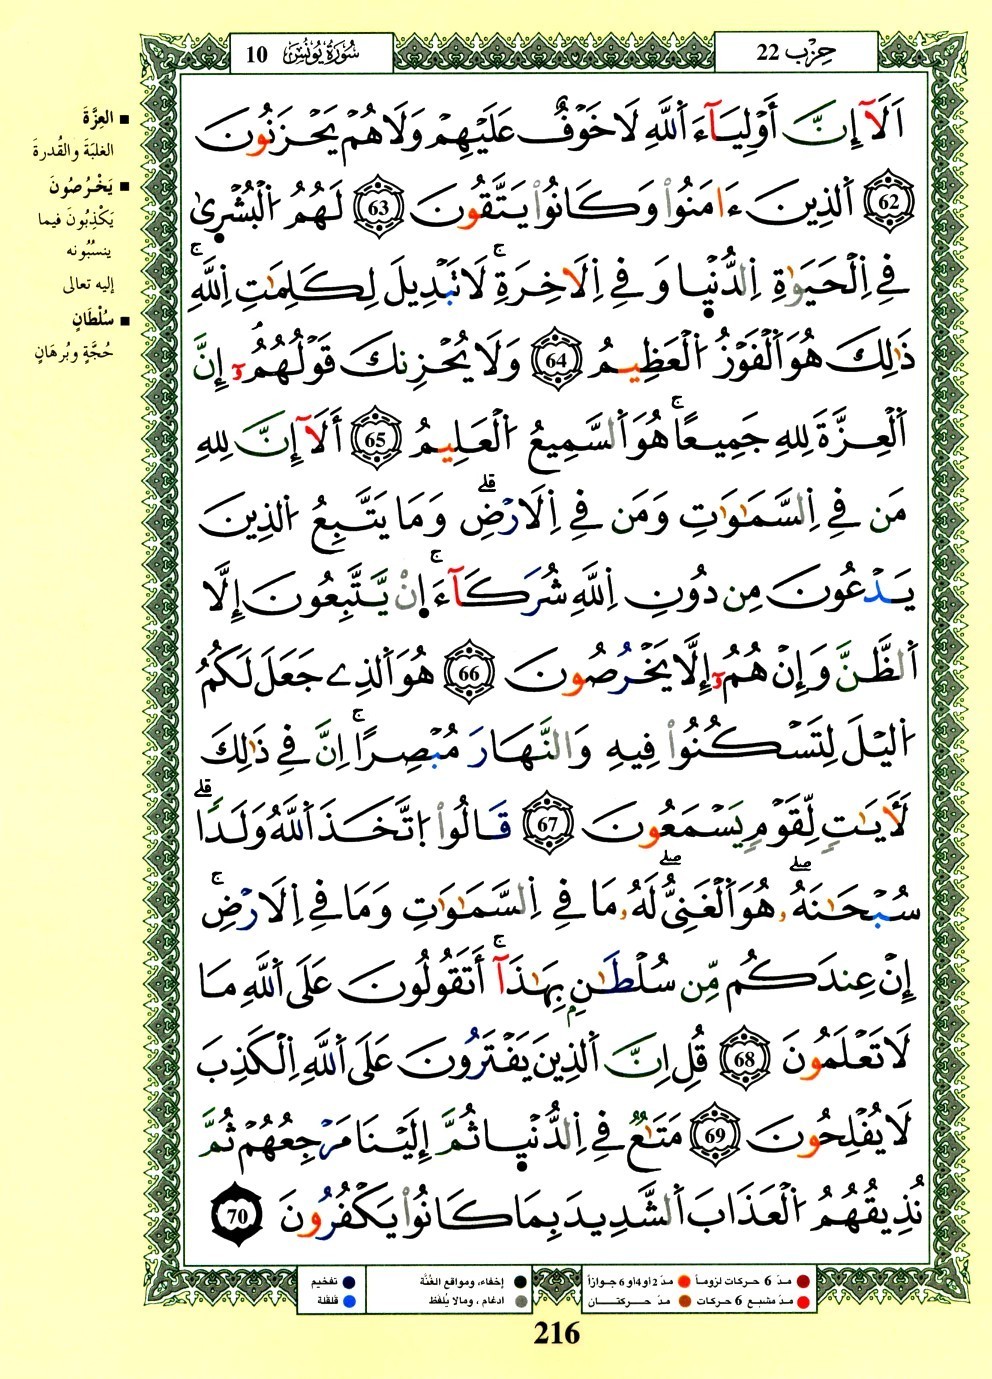 سُورَةُ يُونُسَ 10
حِزْب 22
أَلَآ إِنَّ أَوْلِيَآءَ اَللَّهِ لَا خَوْفٌ عَلَيْهِمْ وَلَا هُمْ يَحْزَنُونَ
62 اَلذِينَ ءَامَنُواْ وَكَانُواْ يَتَّقُونَ 63 لَهُمُ اُلْبُشْر۪ىٰ
فِے اِلْحَيَوٰةِ اِلدُّنْي۪ا وَفِے اِلَاخِرَةِۚ لَا تَبْدِيلَ لِكَلِمَٰتِ اِللَّهِۚ
ذَٰلِكَ هُوَ اَلْفَوْزُ اُلْعَظِيمُ 64 وَلَا يُحْزِنكَ قَوْلُهُمُۥٓ إِنَّ
اَلْعِزَّةَ لِلهِ جَمِيعًاۚ هُوَ اَلسَّمِيعُ اُلْعَلِيمُ 65 أَلَآ إِنَّ لِلهِ
مَن فِے اِلسَّمَٰوَٰتِ وَمَن فِے اِلَارْضِۗ وَمَا يَتَّبِعُ اُلذِينَ
يَدْعُونَ مِن دُونِ اِللَّهِ شُرَكَآءَۚ اِنْ يَّتَّبِعُونَ إِلَّا
اَلظَّنَّ وَإِنْ هُمُۥٓ إِلَّا يَخْرُصُونَ 66 هُوَ اَلذِے جَعَلَ لَكُمُ
اُليْلَ لِتَسْكُنُواْ فِيهِ وَالنَّهَارَ مُبْصِرًاۚ اِنَّ فِے ذَٰلِكَ
لَأٓيَٰتٍ لِّقَوْمٍ يَسْمَعُونَ 67 قَالُواْ اُ۪تَّخَذَ اَللَّهُ وَلَدًاۗ
سُبْحَٰنَهُۥۖ هُوَ اَلْغَنِيُّۖ لَهُۥ مَا فِے اِلسَّمَٰوَٰتِ وَمَا فِے اِلَارْضِۚ
إِنْ عِندَكُم مِّن سُلْطَٰنِۭ بِهَٰذَآۚ أَتَقُولُونَ عَلَى اَللَّهِ مَا
لَا تَعْلَمُونَ 68 قُلِ اِنَّ اَلذِينَ يَفْتَرُونَ عَلَى اَللَّهِ اِلْكَذِبَ
لَا يُفْلِحُونَ 69 مَتَٰعٌ فِے اِلدُّنْي۪ا ثُمَّ إِلَيْنَا مَرْجِعُهُمْ ثُمَّ
نُذِيقُهُمُ اُلْعَذَابَ اَلشَّدِيدَ بِمَا كَانُواْ يَكْفُرُونَ 70
■ العِزَّةَ
الغلبَةَ والقُدرةَ
■ يَخْرُصُونَ
يَكْذِبُونَ فيما
ينسُبُونه
إليه تعالى
■ سُلْطَانٍ
حُجَّةٍ وبُرهَانٍ
مدّ 6 حركات لزوماً ● مدّ 2 أو 4 أو 6 جوازاً ● إخفاء، ومواقع الغُنَّة ● تفخيم
مدّ مشبع 6 حركات ● مدّ حركتان ● ادغام، ومالا يُلفَظ ● قلقلة
216